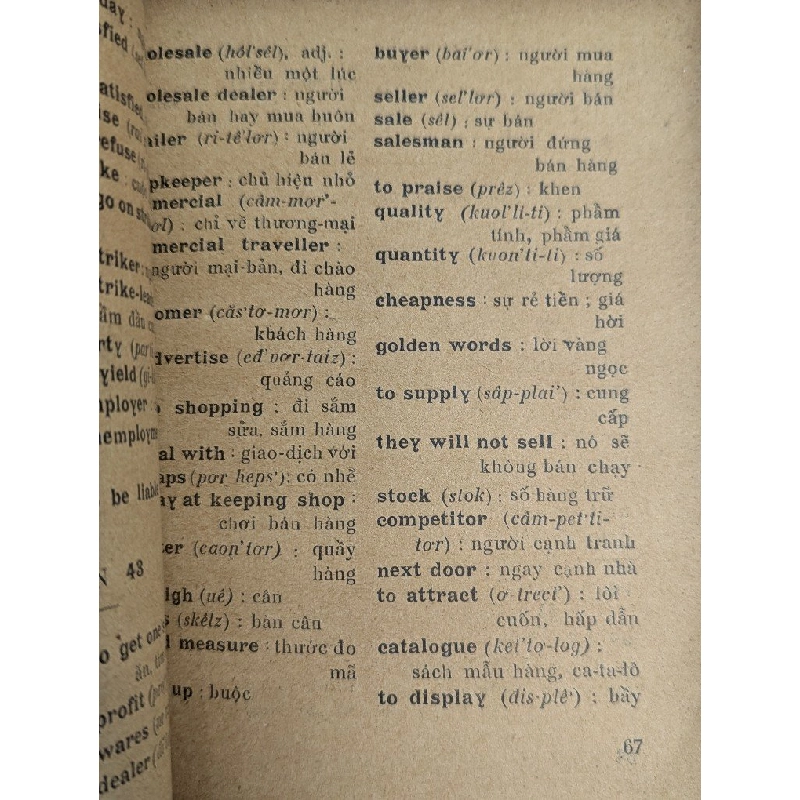 day :
sfied
satisfied
refuse
ke :
go on str
triker
trike-lea
ầm đầu
rty
yield
mployer
nemployme
be liab
N 43
o get one
ăn,
profit
wares
dealer
olesale (hôl'sêl), adj. :
nhiều một lúc
olesale dealer : người
bán hay mua buôn
ailer (ri-tê'lơr) : người
bán lẻ
pkeeper : chủ hiện nhỏ
mercial (câm-mơr'-
ơl) : chỉ về thương-mại
mercial traveller :
người mại-bản, đi chào
hàng
omer (căs'tơ-mơr) :
khách hàng
dvertise (eđ'vơr-taiz) :
quảng cáo
shopping : đi sắm
sửa, sắm hàng
al with : giao-dịch với
aps (pơr heps') : có nhẽ
ay at keeping shop :
chơi bán hàng
ter (caon'tơr) : quầy
hàng
igh (uê) : cân
s (skêlz) : bàn cân
measure : thước đo
mã
up : buộc
buyer (bai'ơr) : người mua
hàng
seller (sel'lơr) : người bán
sale (sêl) : sự bán
salesman : người đứng
bán hàng
to praise (prêz) : khen
quality (kuol'li-ti) : phẩm
tính, phẩm giá
quantity (kuon'ti-ti) : số
lượng
cheapness : sự rẻ tiền ; giá
hời
golden words : lời vàng
ngọc
to supply (sâp-plai') : cung
cấp
they will not sell : nó sẽ
không bán chạy
stock (stok) : số hàng trữ
competitor (câm-pet'ti-
tơr) : người cạnh tranh
next door : ngay cạnh nhà
to attract (ơ-trect') : lôi
cuốn, hấp dẫn
catalogue (ket'tơ-log) :
sách mẫu hàng, ca-ta-lô
to display (dis-plê') : bầy
67